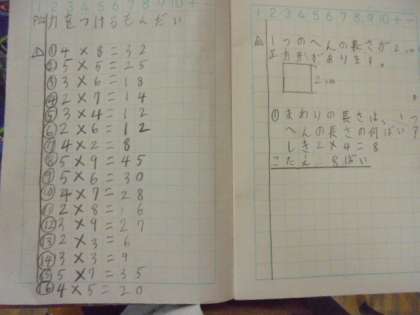 力をつけるもんだい
① 4 × 8 = 32
② 5 × 5 = 25
③ 3 × 6 = 18
④ 2 × 7 = 14
⑤ 3 × 4 = 12
⑥ 2 × 6 = 12
⑦ 4 × 2 = 8
⑧ 5 × 9 = 45
⑨ 5 × 6 = 30
⑩ 4 × 7 = 28
⑪ 2 × 8 = 16
⑫ 3 × 9 = 27
⑬ 2 × 3 = 6
⑭ 3 × 3 = 9
⑮ 5 × 7 = 35
⑯ 4 × 5 = 20
1 2 3 4 5 6 7 8 9 10
1つのへんの長さが2cm
正方形があります。
2cm
① まわりの長さは、1つ
へんの長さの何ばい?
しき 2 × 4 = 8
こたえ 8ばい